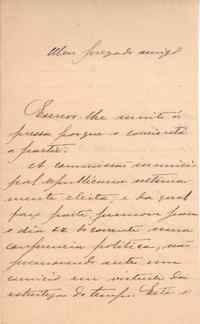 Meu prezado amigo
Escrevo-lhe muito á
pressa porque o comicio está
a partir.
A commissão munici-
pal republicana ultima-
mente eleita, e da qual
faz parte, promove para
o dia 22 do corrente uma
conferencia politica, não
promovendo antes um
comicio em virtude da
do tempo. Este o